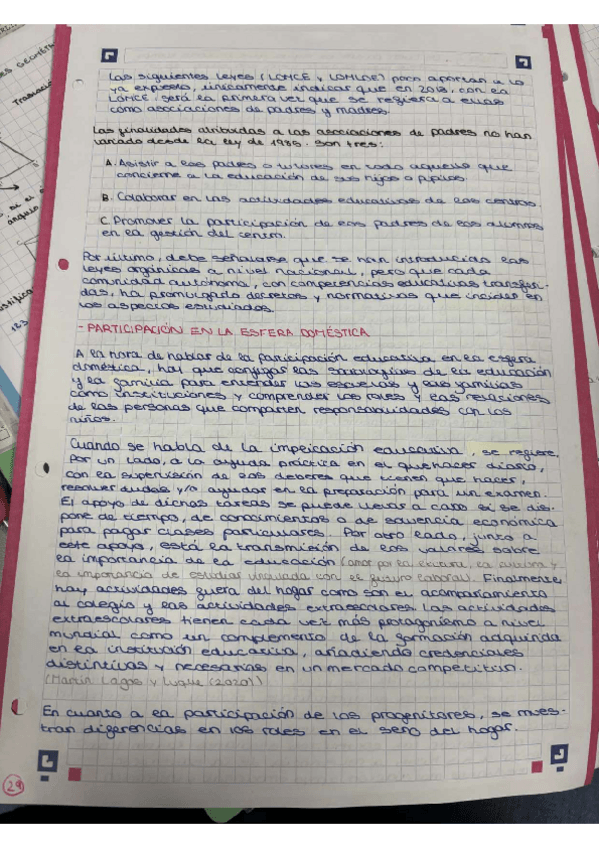 Las siguientes leyes (LOMCE y LOMLOE) poco aportan a lo
ya expuesto, únicamente indicar que en 2013, con la
LOMCE, será la primera vez que se refiera a ellas
como asociaciones de padres y madres.
Las finalidades atribuidas a las asociaciones de padres no han
variado desde la ley de 1985. Son tres:
A. Asistir a los padres o tutores en todo aquello que
concierne a la educación de sus hijos o pupilos
B. Colaborar en las actividades educativas de los centros.
C. Promover la participación de los padres de los alumnos
en la gestión del centro.
Por último, debe señalarse que se han introducido las
leyes orgánicas a nivel nacional, pero que cada
comunidad autónoma, con competencias educativas transferi-
das, ha promulgado decretos y normativas que inciden en
los aspectos estudiados.
- PARTICIPACIÓN EN LA ESFERA DOMÉSTICA
A la hora de hablar de la participación educativa en la esfera
doméstica, hay que conjugar las sociologías de la educación
y la familia para entender las escuelas y las familias
como instituciones y comprender los roles y las relaciones
de las personas que comparten responsabilidades con los
niños.
Cuando se habla de la implicación educativa, se refiere,
por un lado, a la ayuda práctica en el quehacer diario,
con la supervisión de los deberes que tienen que hacer,
resolver dudas y/o ayudar en la preparación para un examen.
El apoyo de dichas tareas se puede llevar a cabo si se dis-
pone de tiempo, de conocimientos o de solvencia económica
para pagar clases particulares. Por otro lado, junto a
este apoyo, está la transmisión de los valores sobre
la importancia de la educación (amor por la escuela, la cultura y
la importancia de estudiar vinculada con el futuro laboral). Finalmente,
hay actividades fuera del hogar como son el acompañamiento
al colegio y las actividades extraescolares. Las actividades
extraescolares tienen cada vez más potagonismo a nivel
mundial como un complemento de la formación adquirida
en la institución educativa, añadiendo credenciales
distintivas y necesarias en un mercado competitivo.
(Martín Lagos y Luque (2020))
En cuanto a la participación de los progenitores, se mues-
tran diferencias en los roles en el seno del hogar.
29